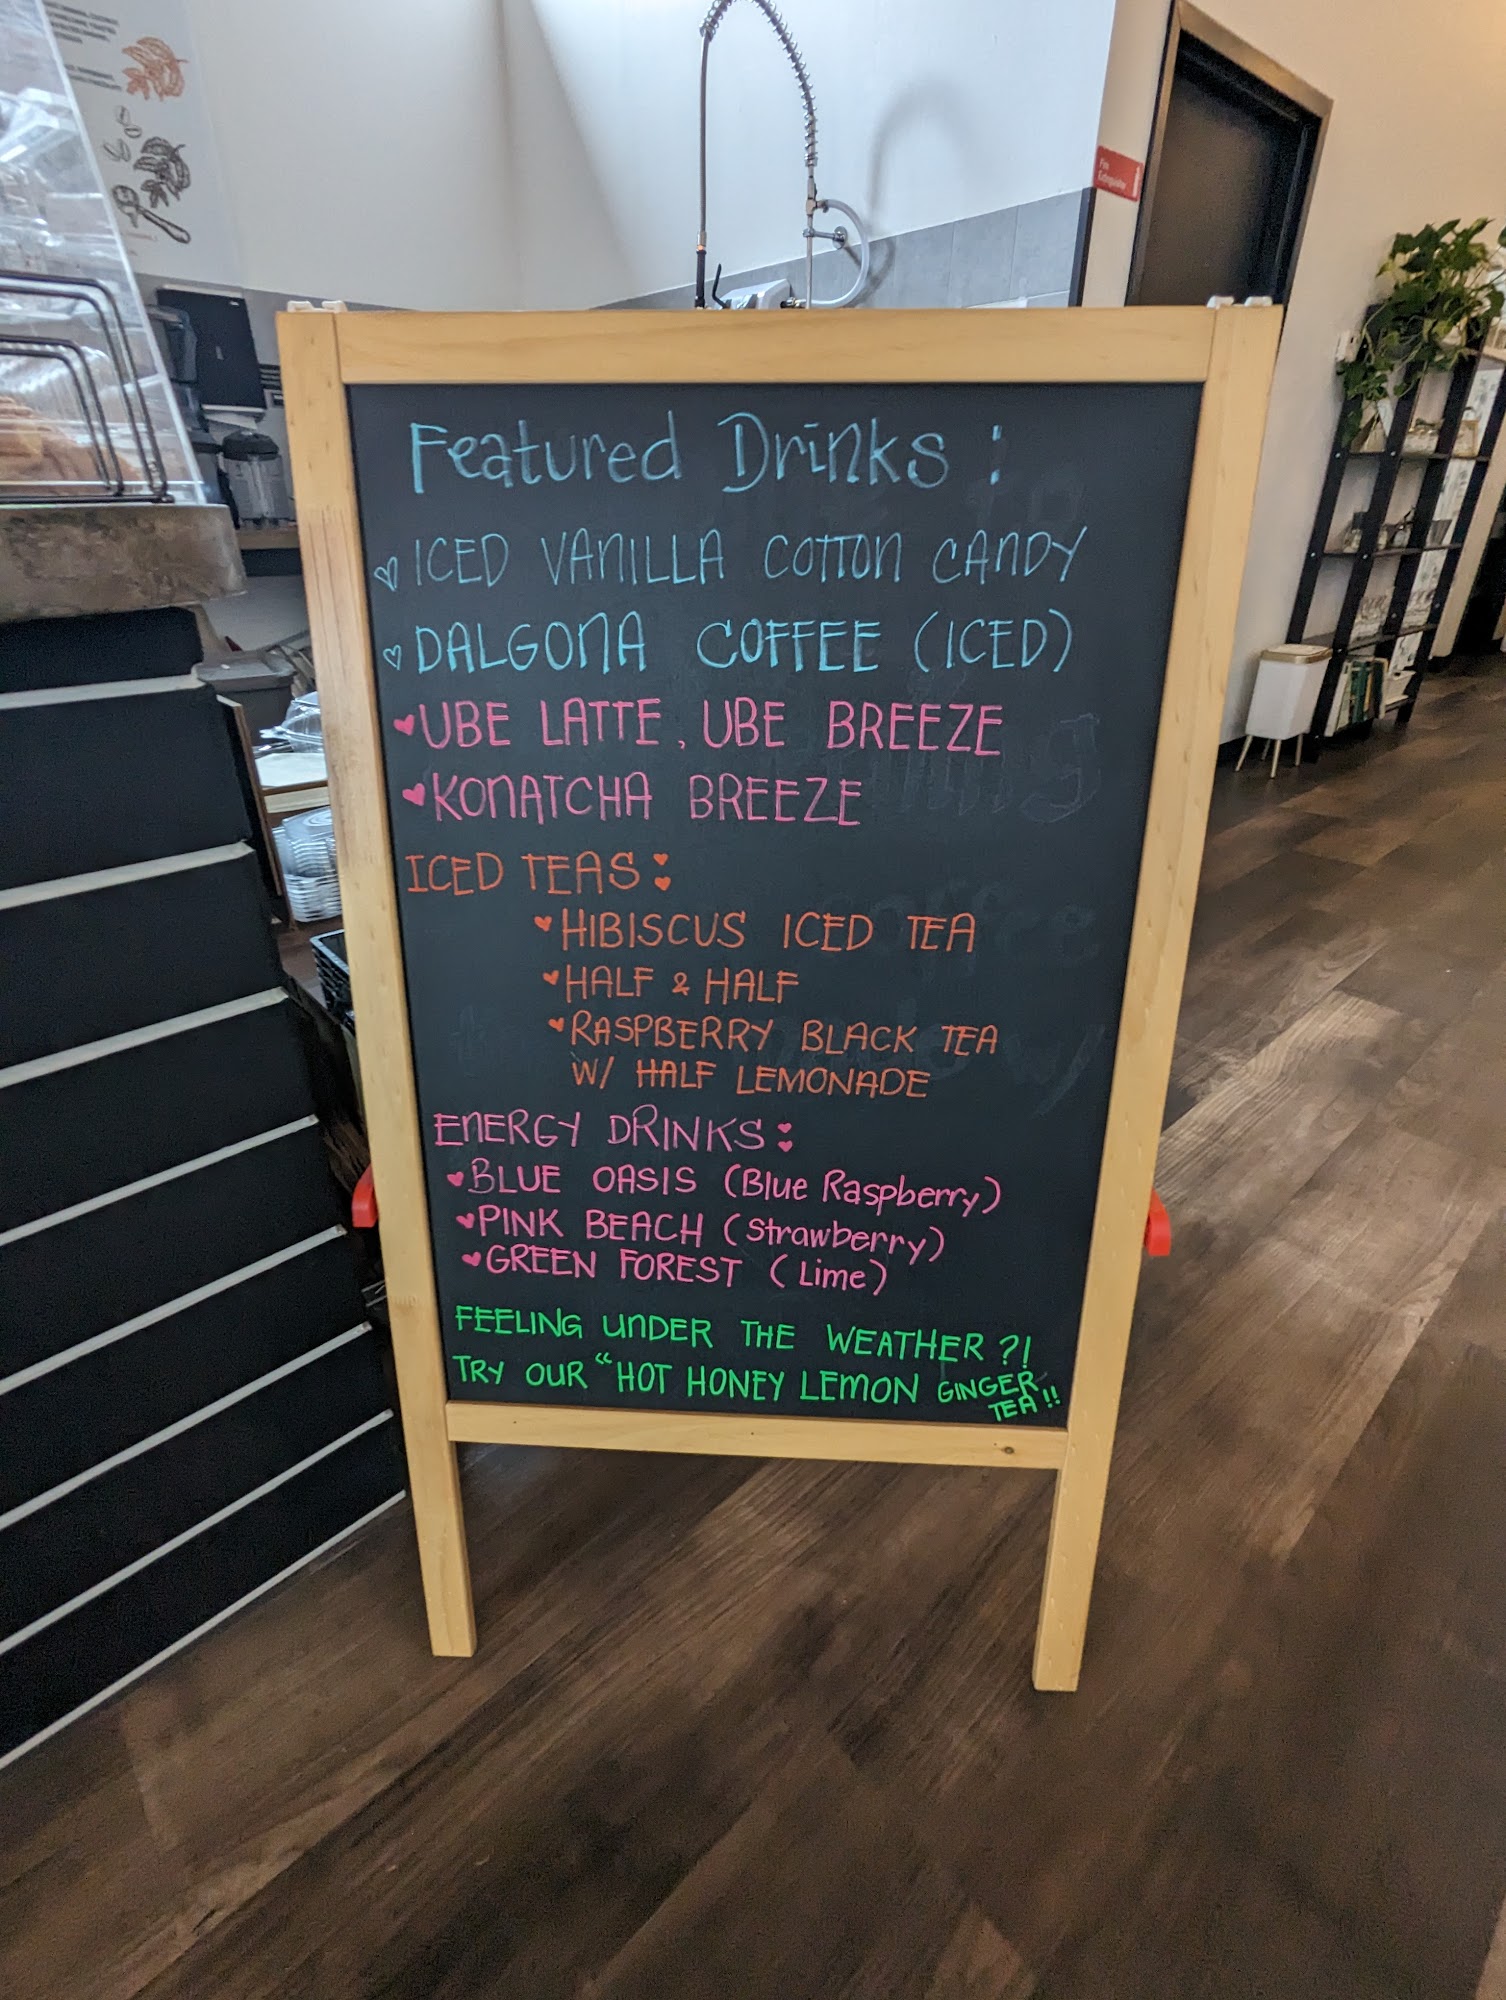 Featured Drinks:
ICED VANILLA COTTON CANDY
DALGONA COFFEE (ICED)
UBE LATTE, UBE BREEZE
KONATCHA BREEZE
ICED TEAS:
HIBISCUS ICED TEA
HALF & HALF
RASPBERRY BLACK TEA
W/ HALF LEMONADE
ENERGY DRINKS:
BLUE OASIS (Blue Raspberry)
PINK BEACH (Strawberry)
GREEN FOREST (Lime)
FEELING UNDER THE WEATHER?!
TRY OUR "HOT HONEY LEMON GINGER
TEA!!
Fire
Extinguisher